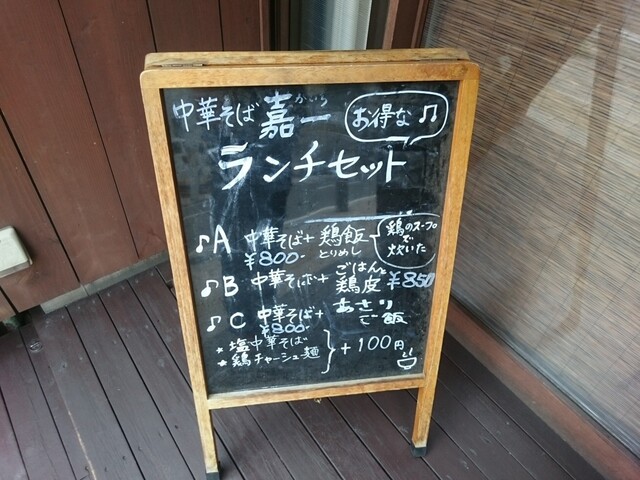 中華そば 嘉一 かいち お得な♫
ランチセット
♪A 中華そば+ 鶏飯 とりめし 鶏のスープで炊いた
¥800-
♪B 中華そば+ ごはんと鶏皮 ¥850
♪C 中華そば+ あさりご飯
¥800-
★塩中華そば
★鶏チャーシュー麺
+100円